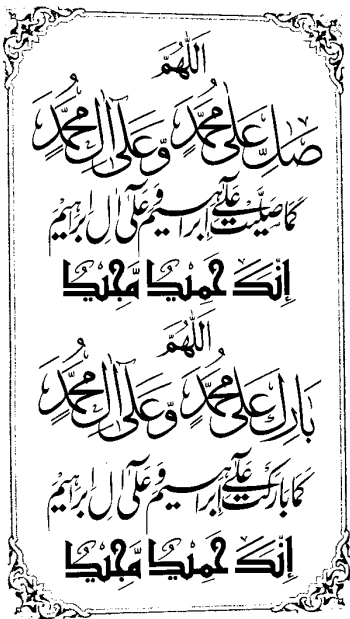 اللّٰهُمَّ
صَلِّ عَلٰى مُحَمَّدٍ وَّعَلٰى اٰلِ مُحَمَّدٍ
كَمَا صَلَّيْتَ عَلٰى اِبْرَاهِيْمَ وَعَلٰى اٰلِ اِبْرَاهِيْمَ
اِنَّكَ حَمِيْدٌ مَّجِيْدٌ
اللّٰهُمَّ
بَارِكْ عَلٰى مُحَمَّدٍ وَّعَلٰى اٰلِ مُحَمَّدٍ
كَمَا بَارَكْتَ عَلٰى اِبْرَاهِيْمَ وَعَلٰى اٰلِ اِبْرَاهِيْمَ
اِنَّكَ حَمِيْدٌ مَّجِيْدٌ